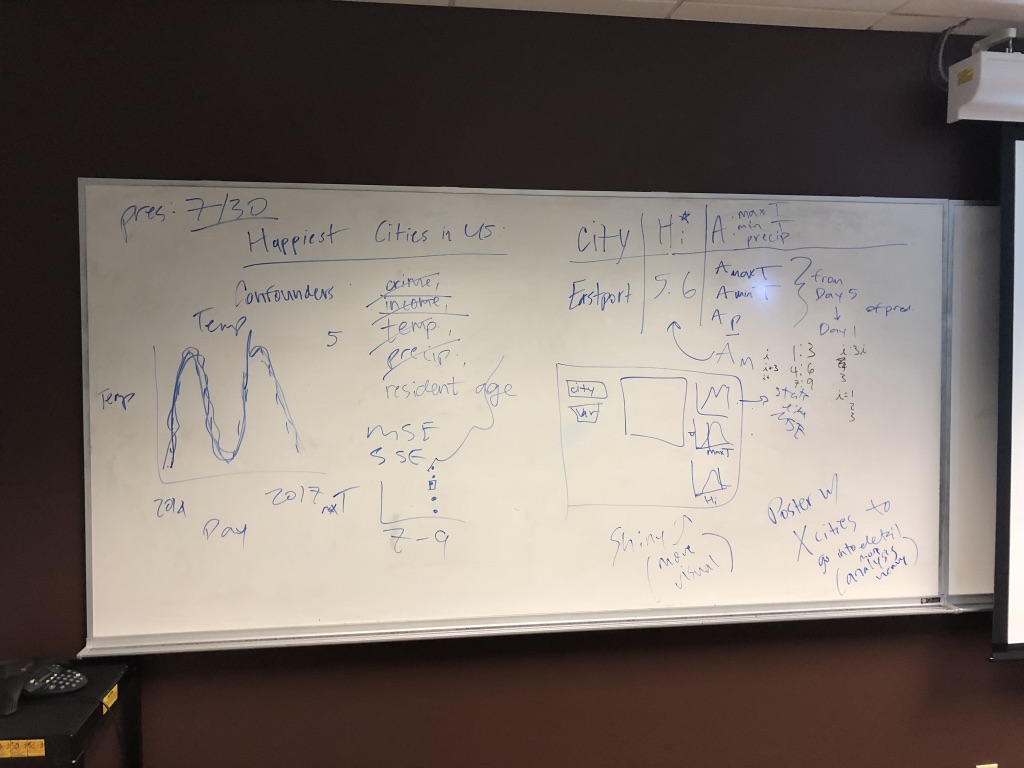 pres: 7/30
Happiest Cities in US.
Confounders
crime,
income,
temp,
precip.
resident age
Temp
5
Temp
2014
2017
Day
MSE
SSE
maxT
7-9
City Hi* A: maxT
minT
precip
Eastport 5.6 AmaxT
AminT
AP
from
Day 5
↓
Day 1
of pred.
AM
i 1:3
i+3 4:6
7:9
i:3i
3
i=1
2
3
City
Var
maxT
Hi
Shiny
(more
visual)
Poster w/
X cities to
go into detail
(more
analysis